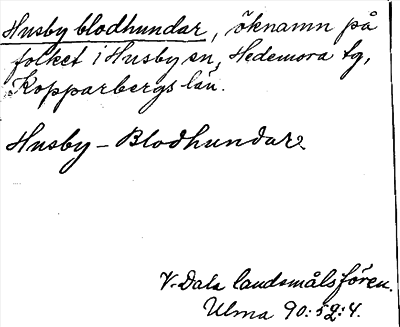 Husby blodhundar, öknamn på
folket i Husby sn, Hedemora tg,
Kopparbergs län.
Husby - Blodhundar
V. Dala landsmålsfören.
Ulma 90:52:4.